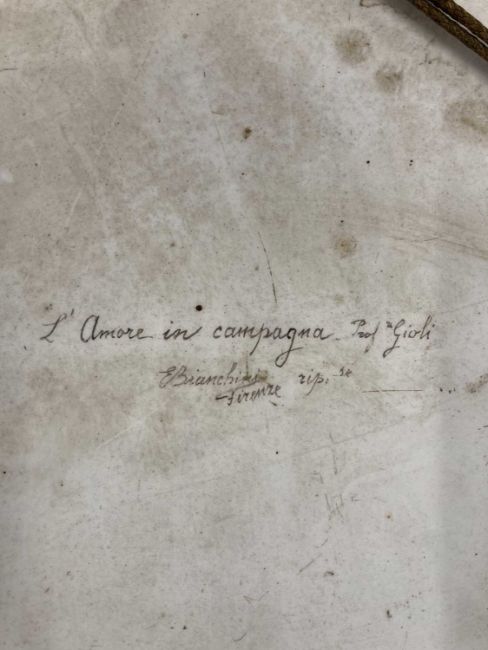 L' Amore in campagna. Prof.re Gioli
EBianchini rip.se
Firenze